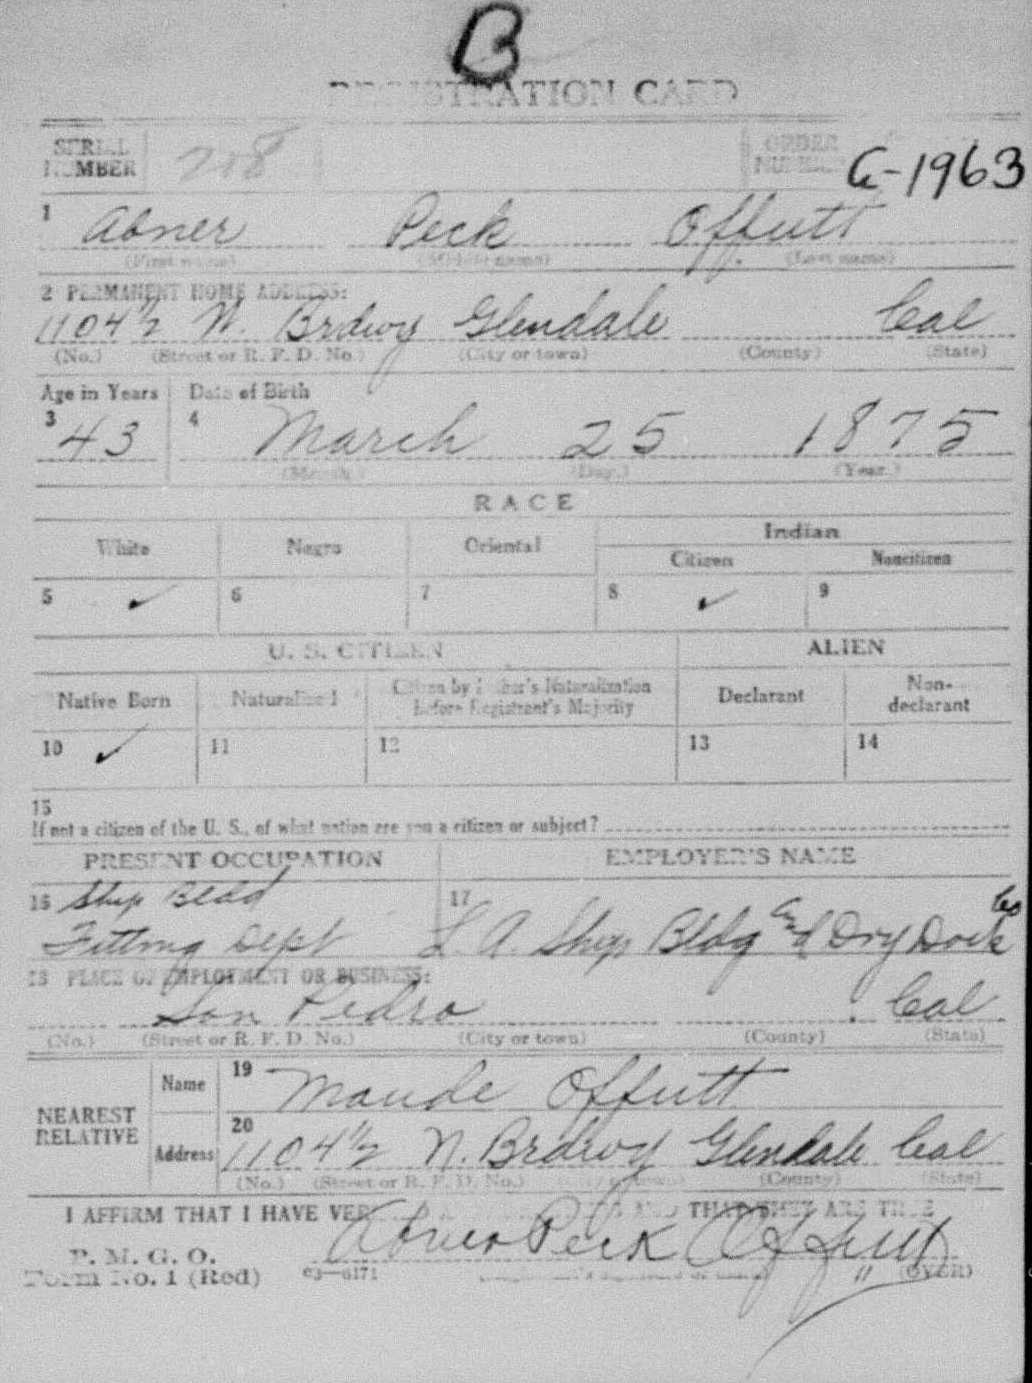 B
REGISTRATION CARD
SERIAL NUMBER 218 ORDER NUMBER G-1963
1 Abner Peck Offutt
(First name) (Middle name) (Last name)
2 PERMANENT HOME ADDRESS:
1104 1/2 N. Brdwy Glendale Cal
(No.) (Street or R. F. D. No.) (City or town) (County) (State)
Age in Years Date of Birth
3 43 4 March 25 1875
(Month.) (Day.) (Year.)
RACE
White Negro Oriental Indian
Citizen Noncitizen
5 ✓ 6 7 8 ✓ 9
U. S. CITIZEN ALIEN
Native Born Naturalized Citizen by Father's Naturalization Before Registrant's Majority Declarant Non-declarant
10 ✓ 11 12 13 14
15
If not a citizen of the U. S., of what nation are you a citizen or subject?
PRESENT OCCUPATION EMPLOYER'S NAME
16 Ship Bldd 17 Co
Fitting Dept L. A. Ship Bldg and Dry Dock
18 PLACE OF EMPLOYMENT OR BUSINESS:
San Pedro Cal
(No.) (Street or R. F. D. No.) (City or town) (County) (State)
NEAREST RELATIVE
Name 19 Maude Offutt
Address 20 1104 1/2 N. Brdwy Glendale Cal
(No.) (Street or R. F. D. No.) (City or town) (County) (State)
I AFFIRM THAT I HAVE VER AND THAT THEY ARE TRUE
P. M. G. O. Abner Peck Offutt
Form No. 1 (Red) 03—6171 (OVER)